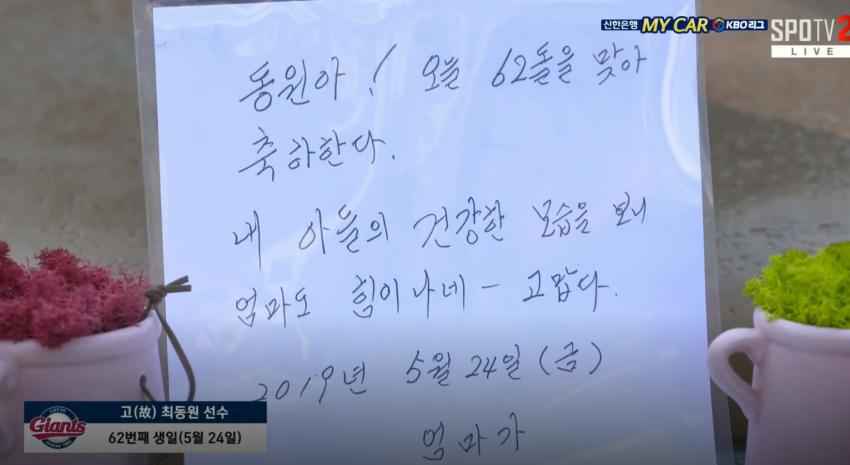 신한은행 MY CAR KBO리그
SPOTV2
LIVE
동원아! 오늘 62돌을 맞아
축하한다.
내 아들의 건강한 모습을 보니
엄마도 힘이나네 - 고맙다.
2019년 5월 24일 (금)
엄마가
LOTTE
Giants
고(故) 최동원 선수
62번째 생일(5월 24일)